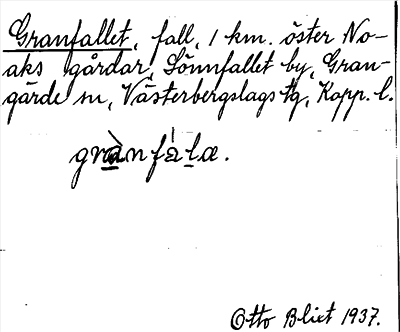 Granfallet, fall, 1 km. öster No-
aks gårdar, Sönnfallet by, Gran-
gärde sn, Västerbergslags tg, Kopp. l.
grànfála.
Otto Blixt 1937.